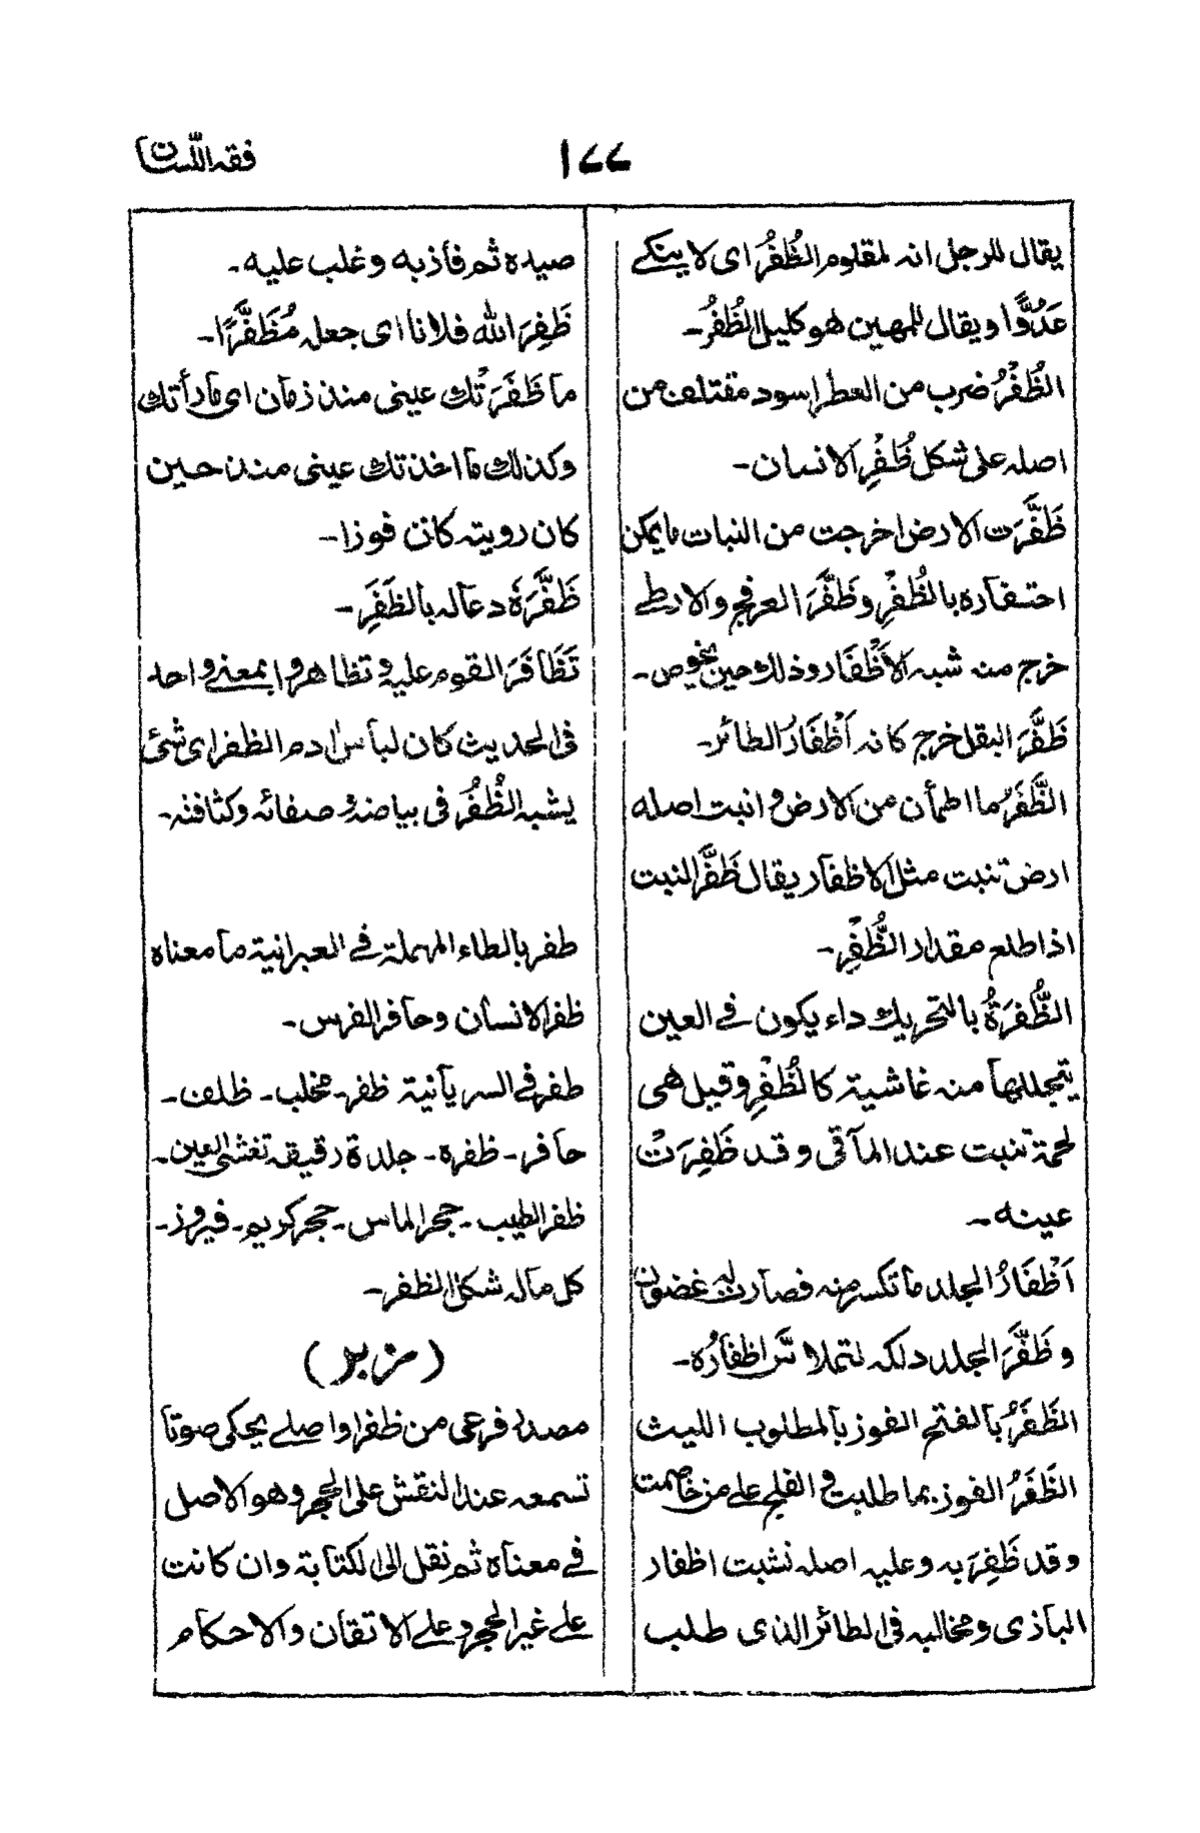 فقه اللسان
١٧٧
يقال للرجل انه لمقلوم الظُّفُرُ اى لا ينكے
عَدُوًّا ويقال للمهين هو كليل الظُّفُرُ۔
الظُّفْرُ ضرب من العطر اسود مقتلف من
اصله على شكل ظُفْرِ الانسان۔
ظَفَّرَت الارض اخرجت من النبات مايمكن
احتفاره بالظُفْرِ وظَفَّرَ العرفج والارطے
خرج منه شبه الأَظْفَار وذلك حين يخوص۔
ظَفَّرَ البقل خرج كانه اَظْفَارُ الطائر۔
الظَّفَرُ ما اطمأن من الارض و انبت اصله
ارض تنبت مثل الاظفار يقال ظَفَّرَ النبت
اذا طلع مقدار الظُّفْرِ۔
الظُّفرَةُ بالتحريك داء يكون فے العين
يتجللها منه غاشية كالظُفْرِ وقيل هى
لحمة تنبت عند المآقى وقد ظَفِرَتْ
عينه۔
اَظْفَارُ الجلد ما تكسر منه فصارت له غضون
و ظَفَّرَ الجلد دلكه لتملاس اظفارُه۔
الظَفَرُ بالفتح الفوز بالمطلوب الليث
الظَفَرُ الفوز بما طلبت و الفلج علے من خاصمت
وقد ظَفِرَ به وعليه اصله نشبت اظفار
البازى ومخالبه فى الطائر الذى طلب
صيده ثم فاز به وغلب عليه۔
ظَفِرَ الله فلانا اى جعله مُظَفَّرًا۔
ما ظَفَرَتْك عينى منذ زمان اى ما رأتك
وكذلك ما اخذتك عينى منذ حين
كان رويته كانت فوزا۔
ظَفَّرَهٗ دعاله بالظَفَرِ۔
تَظَافَرَ القوم عليه و تظاهروا بمعنے واحد
فى الحديث كان لباس ادم الظفر اى شئ
يشبه الظُفُرَ فى بياضه و صفائه وكثافته۔
طفر بالطاء المهملة فے العبرانية ما معناه
ظفر الانسان وحافر الفرس۔
طفر فے السريانية ظفر۔ مخلب۔ ظلف۔
حافر۔ ظفره۔ جلدة رقيقه تغشى العين۔
ظفر الطيب۔ حجر الماس۔ حجر كريم۔ فيروز۔
كل ماله شكل الظفر۔
(مزبر)
مصدر فرعى من ظفر او اصلے يحكى صوتا
تسمعه عند النقش على الحجر وهو الاصل
فے معناه ثم نقل الى الكتابة وان كانت
علے غير الحجر وعلے الاتقان والاحكام